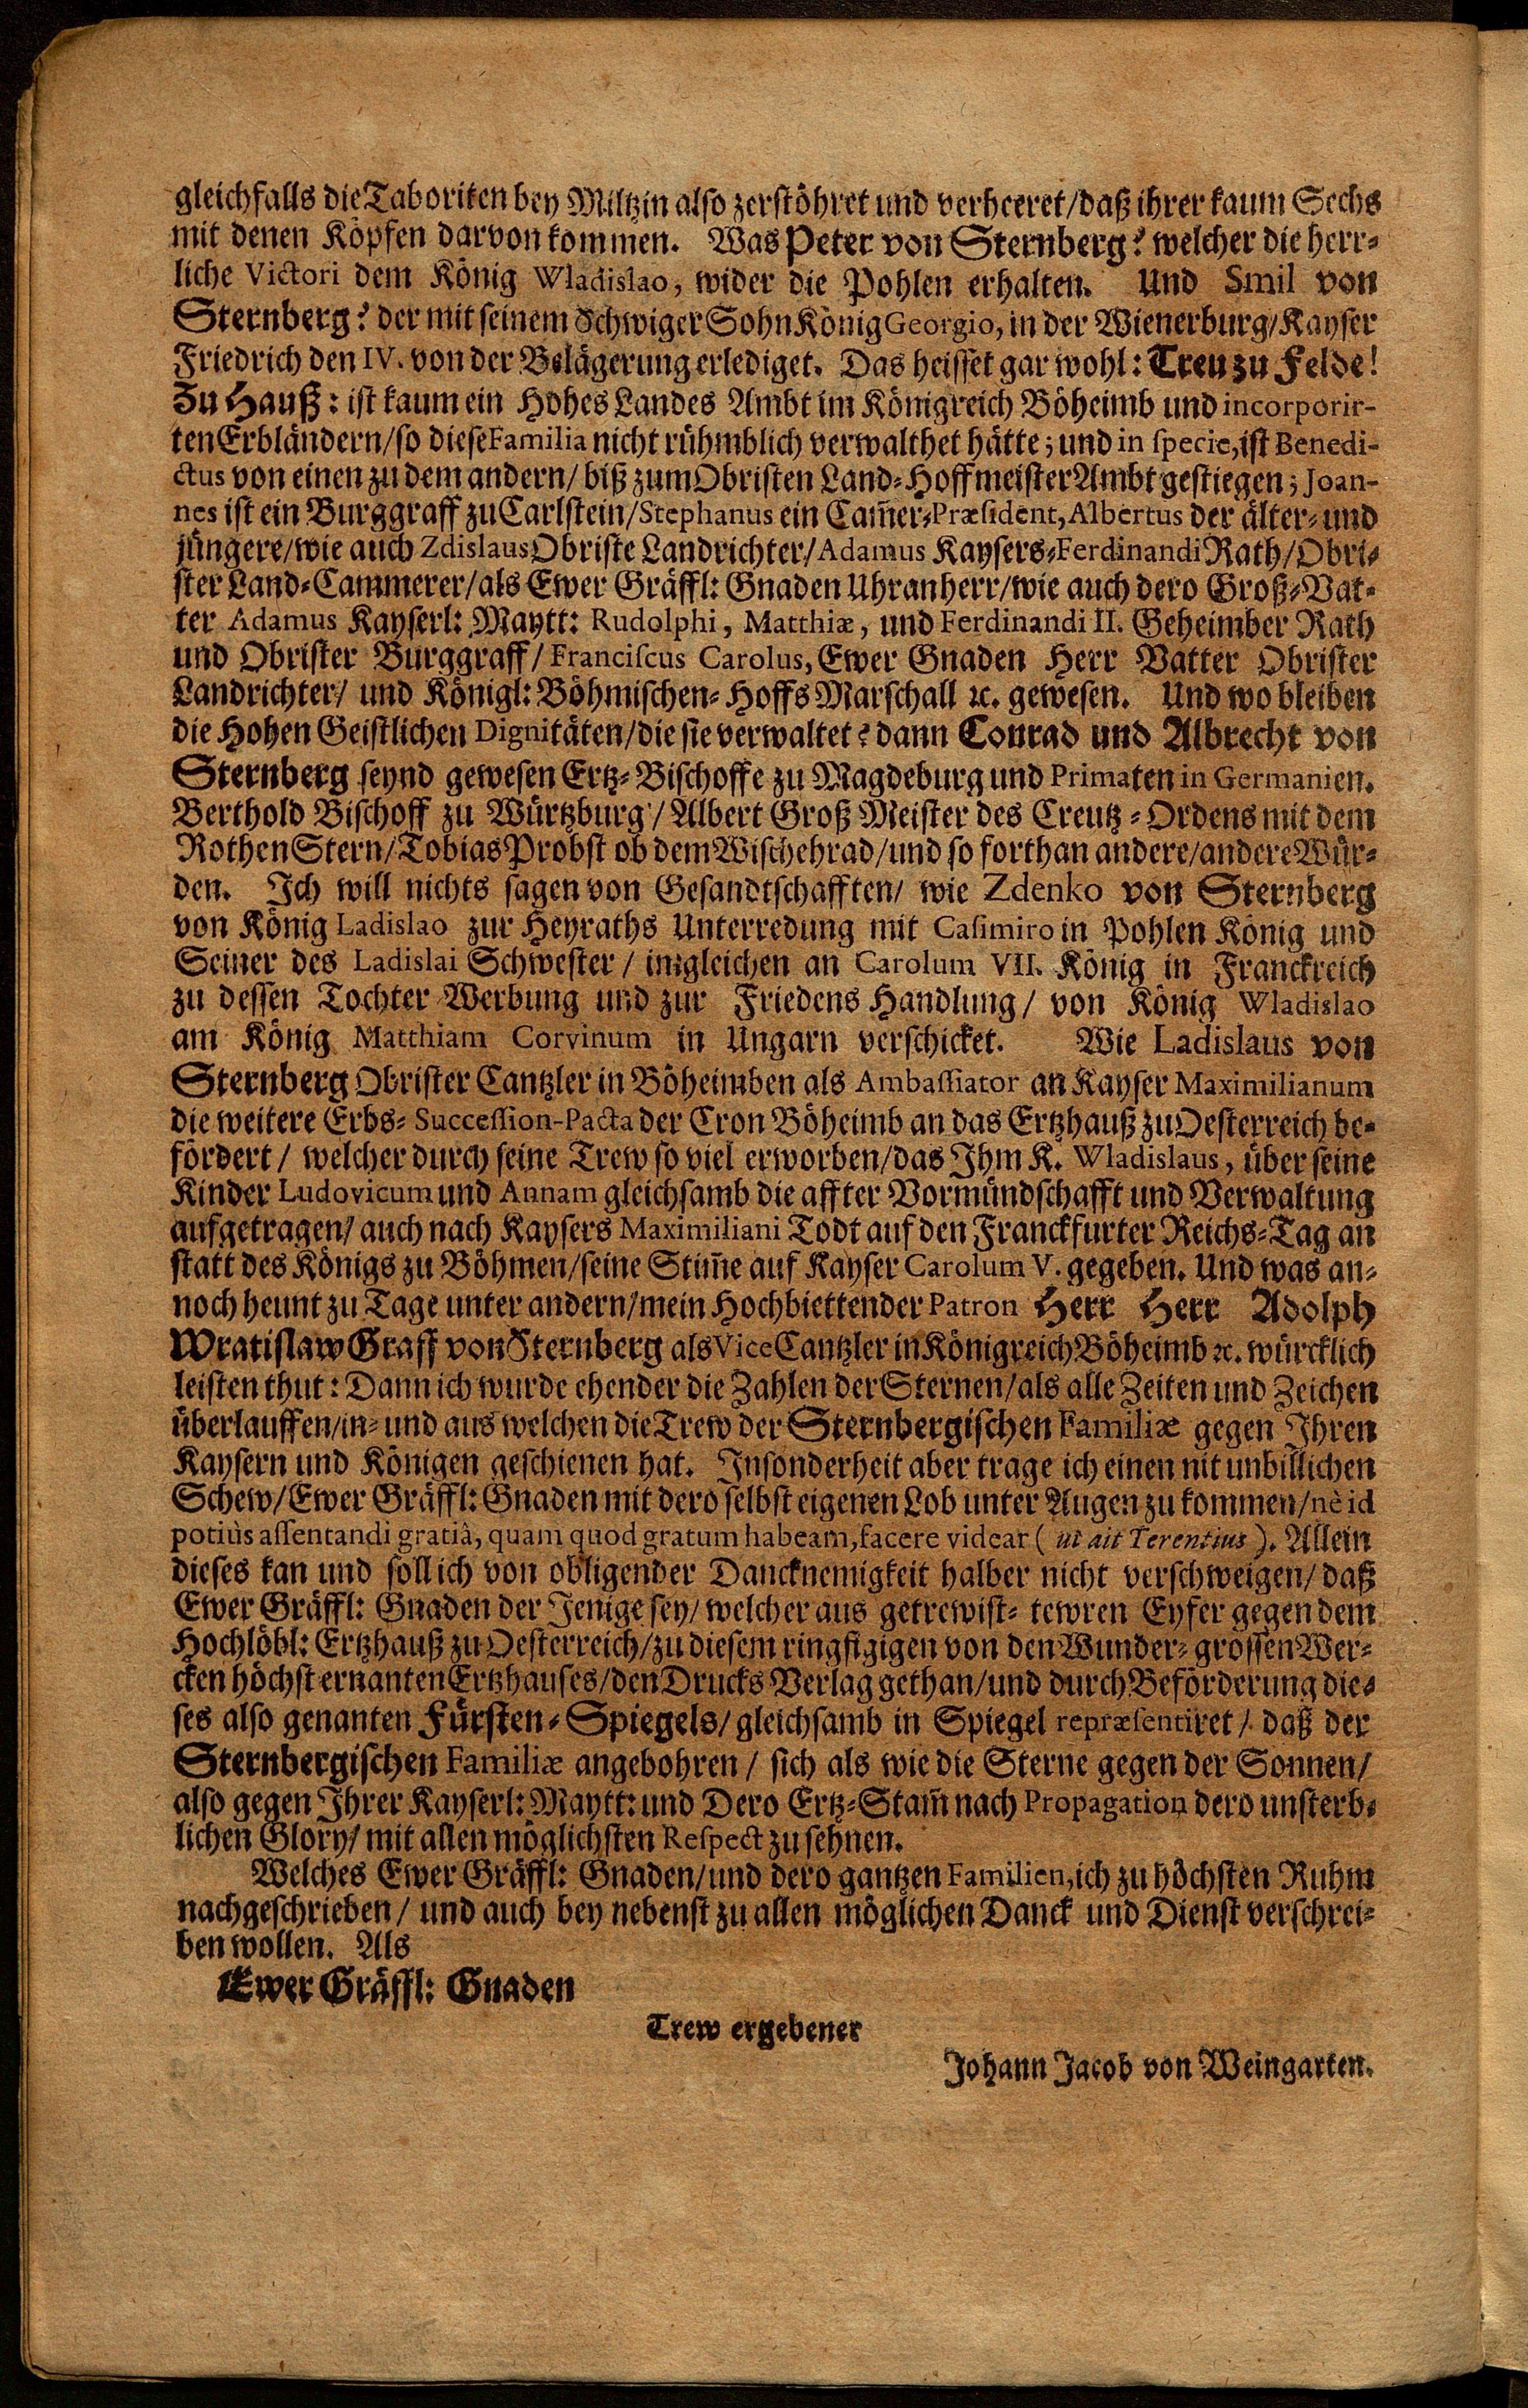 gleichfalls die Taboriten bey Miltzin also zerstöhret und verheeret/daß ihrer kaum Sechs
mit denen Köpfen darvon kommen. Was Peter von Sternberg? welcher die herr-
liche Victori dem König Wladislao, wider die Pohlen erhalten. Und Smil von
Sternberg? der mit seinem Schwiger Sohn König Georgio, in der Wienerburg/Kayser
Friedrich den IV. von der Belägerung erlediget. Das heisset gar wohl: Treu zu Felde!
Zu Hauß: ist kaum ein Hohes Landes Ambt im Königreich Böheimb und incorporir-
ten Erbländern/so diese Familia nicht rühmblich verwalthet hätte; und in specie, ist Benedi-
ctus von einen zu dem andern/ biß zum Obristen Land-Hoffmeister Ambt gestiegen; Joan-
nes ist ein Burggraff zu Carlstein/Stephanus ein Cam̃er-Præsident, Albertus der älter- und
jüngere/wie auch Zdislaus Obriste Landrichter/Adamus Kaysers-Ferdinandi Rath/Obri-
ster Land-Cammerer/als Ewer Gräffl: Gnaden Uhranherr/wie auch dero Groß-Vat-
ter Adamus Kayserl: Maytt: Rudolphi, Matthiæ, und Ferdinandi II. Geheimber Rath
und Obrister Burggraff/Franciscus Carolus, Ewer Gnaden Herr Vatter Obrister
Landrichter/ und Königl: Böhmischen-Hoffs Marschall ꝛc. gewesen. Und wo bleiben
die Hohen Geistlichen Dignitäten/die sie verwaltet? dann Conrad und Albrecht von
Sternberg seynd gewesen Ertz-Bischoffe zu Magdeburg und Primaten in Germanien.
Berthold Bischoff zu Würtzburg/Albert Groß Meister des Creutz-Ordens mit dem
Rothen Stern/Tobias Probst ob dem Wischehrad/und so forthan andere/andere Wür-
den. Ich will nichts sagen von Gesandtschafften/ wie Zdenko von Sternberg
von König Ladislao zur Heyraths Unterredung mit Casimiro in Pohlen König und
Seiner des Ladislai Schwester/ imgleichen an Carolum VII. König in Franckreich
zu dessen Tochter Werbung und zur Friedens Handlung/ von König Wladislao
am König Matthiam Corvinum in Ungarn verschicket. Wie Ladislaus von
Sternberg Obrister Cantzler in Böheimben als Ambassiator an Kayser Maximilianum
die weitere Erbs-Succession-Pacta der Cron Böheimb an das Ertzhauß zu Oesterreich be-
fördert/ welcher durch seine Trew so viel erworben/das Ihm K. Wladislaus, über seine
Kinder Ludovicum und Annam gleichsamb die affter Vormündschafft und Verwaltung
aufgetragen/ auch nach Kaysers Maximiliani Todt auf den Franckfurter Reichs-Tag an
statt des Königs zu Böhmen/seine Stim̃e auf Kayser Carolum V. gegeben. Und was an-
noch heunt zu Tage unter andern/mein Hochbiettender Patron Herr Herr Adolph
Wratislaw Graff von Sternberg als Vice Cantzler in Königreich Böheimb ꝛc. würcklich
leisten thut: Dann ich wurde ehender die Zahlen der Sternen/als alle Zeiten und Zeichen
überlauffen/in- und aus welchen die Trew der Sternbergischen Familiæ gegen Ihren
Kaysern und Königen geschienen hat. Insonderheit aber trage ich einen nit unbillichen
Schew/Ewer Gräffl: Gnaden mit dero selbst eigenen Lob unter Augen zu kommen/nè id
potiùs assentandi gratiâ, quam quod gratum habeam, facere videar (ut ait Terentius). Allein
dieses kan und soll ich von obligender Dancknemigkeit halber nicht verschweigen/ daß
Ewer Gräffl: Gnaden der Jenige sey/ welcher aus getrewist-tewren Eyfer gegen dem
Hochlöbl: Ertzhauß zu Oesterreich/zu diesem ringfügigen von den Wunder-grossen Wer-
cken höchst ernanten Ertzhauses/den Drucks Verlag gethan/und durch Beförderung die-
ses also genanten Fürsten-Spiegels/ gleichsamb in Spiegel repræsentiret/ daß der
Sternbergischen Familiæ angebohren/ sich als wie die Sterne gegen der Sonnen/
also gegen Ihrer Kayserl: Maytt: und Dero Ertz-Stam̃ nach Propagation dero unsterb-
lichen Glory/ mit allen möglichsten Respect zu sehnen.
Welches Ewer Gräffl: Gnaden/und dero gantzen Familien, ich zu höchsten Ruhm
nachgeschrieben/ und auch bey nebenst zu allen möglichen Danck und Dienst verschrei-
ben wollen. Als
Ewer Gräffl: Gnaden
Trew ergebener
Johann Jacob von Weingarten.